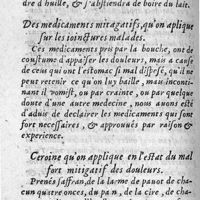 dre d'huille, & s'abstiendra de boire du lait.
Des medicaments mitagatifs, qu'on aplique
sur les ioinctures malades.
Ces medicaments pris par la bouche, ont de
coustume d'appaiser les douleurs, mais a cause
de ceux qui ont l'estomac si mal disposé, qu'il ne
peut retenir ce qu'on luy baille, mais inconti-
nant il vomist, ou par crainte, ou par quelque
doute d'une autre medecine, nous auons esté
d'aduis de declairer les medicaments qui sont
fort necessaires, & approuués par raison &
experience.
Ceroine qu'on applique en l'estat du mal
fort mitigatif des douleurs.
Prenés saffran, de la larme de pauot de chacun
quatre onces, du pain, de la cire, de cha-